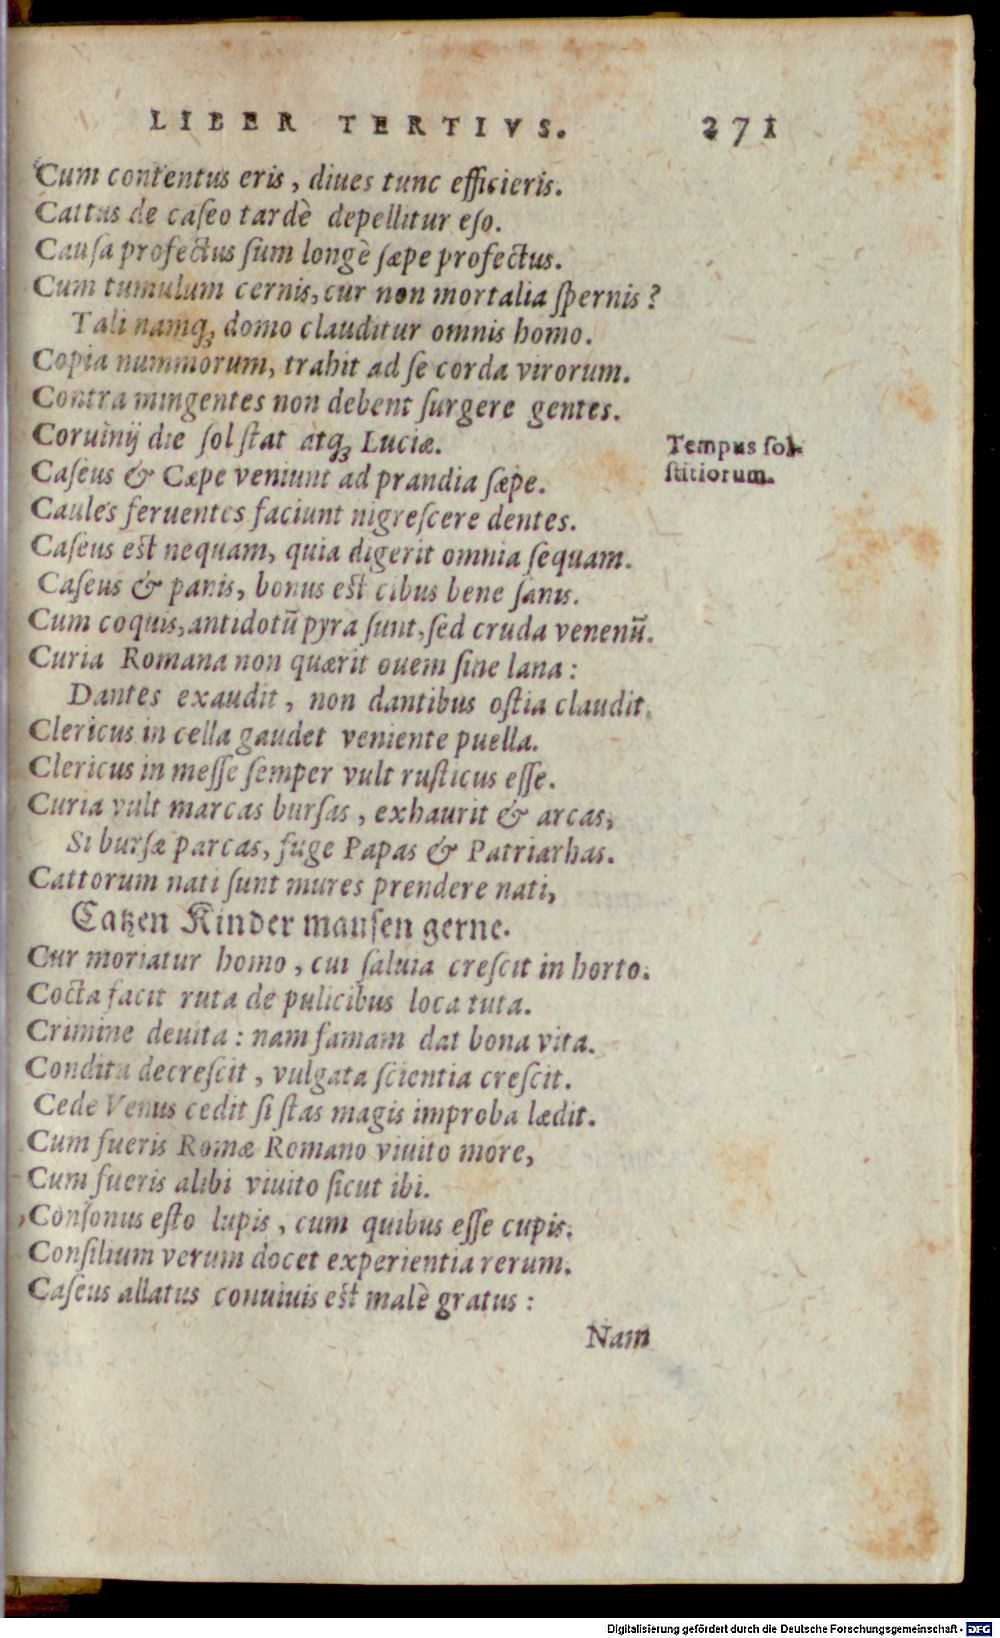 LIBER TERTIVS. 271
Cum contentus eris, diues tunc efficieris.
Cattus de caſeo tardè depellitur eſo.
Cauſa profectus ſum longè ſæpe profectus.
Cum tumulum cernis, cur non mortalia ſpernis?
Tali namq́ꝫ domo clauditur omnis homo.
Copia nummorum, trahit ad ſe corda virorum.
Contra mingentes non debent ſurgere gentes.
Coruinij die ſol ſtat atq́ꝫ Luciæ.
Tempus ſol-
ſtitiorum.
Caſeus & Cæpe veniunt ad prandia ſæpe.
Caules feruentes faciunt nigreſcere dentes.
Caſeus eſt nequam, quia digerit omnia ſequam.
Caſeus & panis, bonus eſt cibus bene ſanis.
Cum coquis, antidotū pyra ſunt, ſed cruda venenū.
Curia Romana non quærit ouem ſine lana:
Dantes exaudit, non dantibus oſtia claudit.
Clericus in cella gaudet veniente puella.
Clericus in meſſe ſemper vult ruſticus eſſe.
Curia vult marcas burſas, exhaurit & arcas,
Si burſæ parcas, fuge Papas & Patriarhas.
Cattorum nati ſunt mures prendere nati,
Catzen Kinder mauſen gerne.
Cur moriatur homo, cui ſaluia creſcit in horto.
Cocta facit ruta de pulicibus loca tuta.
Crimine deuita: nam famam dat bona vita.
Condita decreſcit, vulgata ſcientia creſcit.
Cede Venus cedit ſi ſtas magis improba lædit.
Cum fueris Romæ Romano viuito more,
Cum fueris alibi viuito ſicut ibi.
Conſonus eſto lupis, cum quibus eſſe cupis.
Conſilium verum docet experientia rerum.
Caſeus allatus conuiuis eſt malè gratus:
Nam
Digitalisierung gefördert durch die Deutsche Forschungsgemeinschaft - DFG